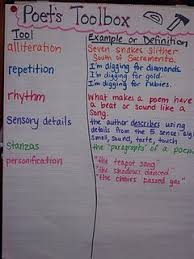 Poet's Toolbox
Tool
Example or Definition
alliteration
Seven snakes slither
South of Sacramento.
repetition
I'm digging for diamonds.
I'm digging for gold.
I'm digging for rubies.
rhythm
What makes a poem have
a beat or sound like a
Song.
Sensory details
the author describes using
details from the 5 senses:
small, sound, taste, touch
Stanzas
the "paragraphs" of a poem
personification
"the teapot sang"
"the shadows danced"
"the chairs passed gas"